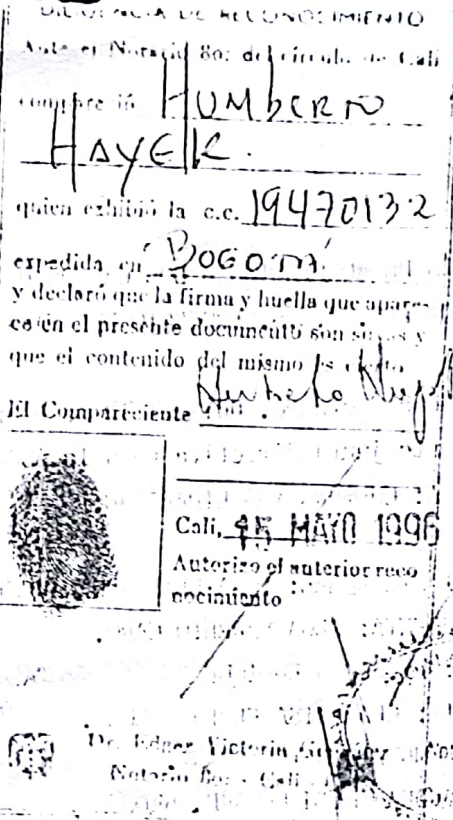 DILIGENCIA DE RECONOCIMIENTO
Ante el Notario 8o: del círculo de Cali
compareció HUMBERTO
HAYEK.
quien exhibió la c.c. 19470132
expedida en BOGOTA
y declaró que la firma y huella que apare-
ce en el presente documento son suyas y
que el contenido del mismo es cierto
El Compareciente
Cali, 15 MAYO 1996
Autorizo el anterior reco
nocimiento
Dr. Edgar Victoria
Notario 8o. - Cali